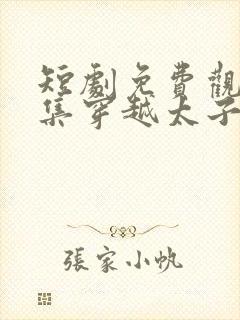 短劇免費觀
集穿越太子
張家小帆